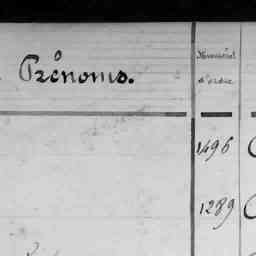 Prénoms.
Numéros
d'ordre
1496
1289